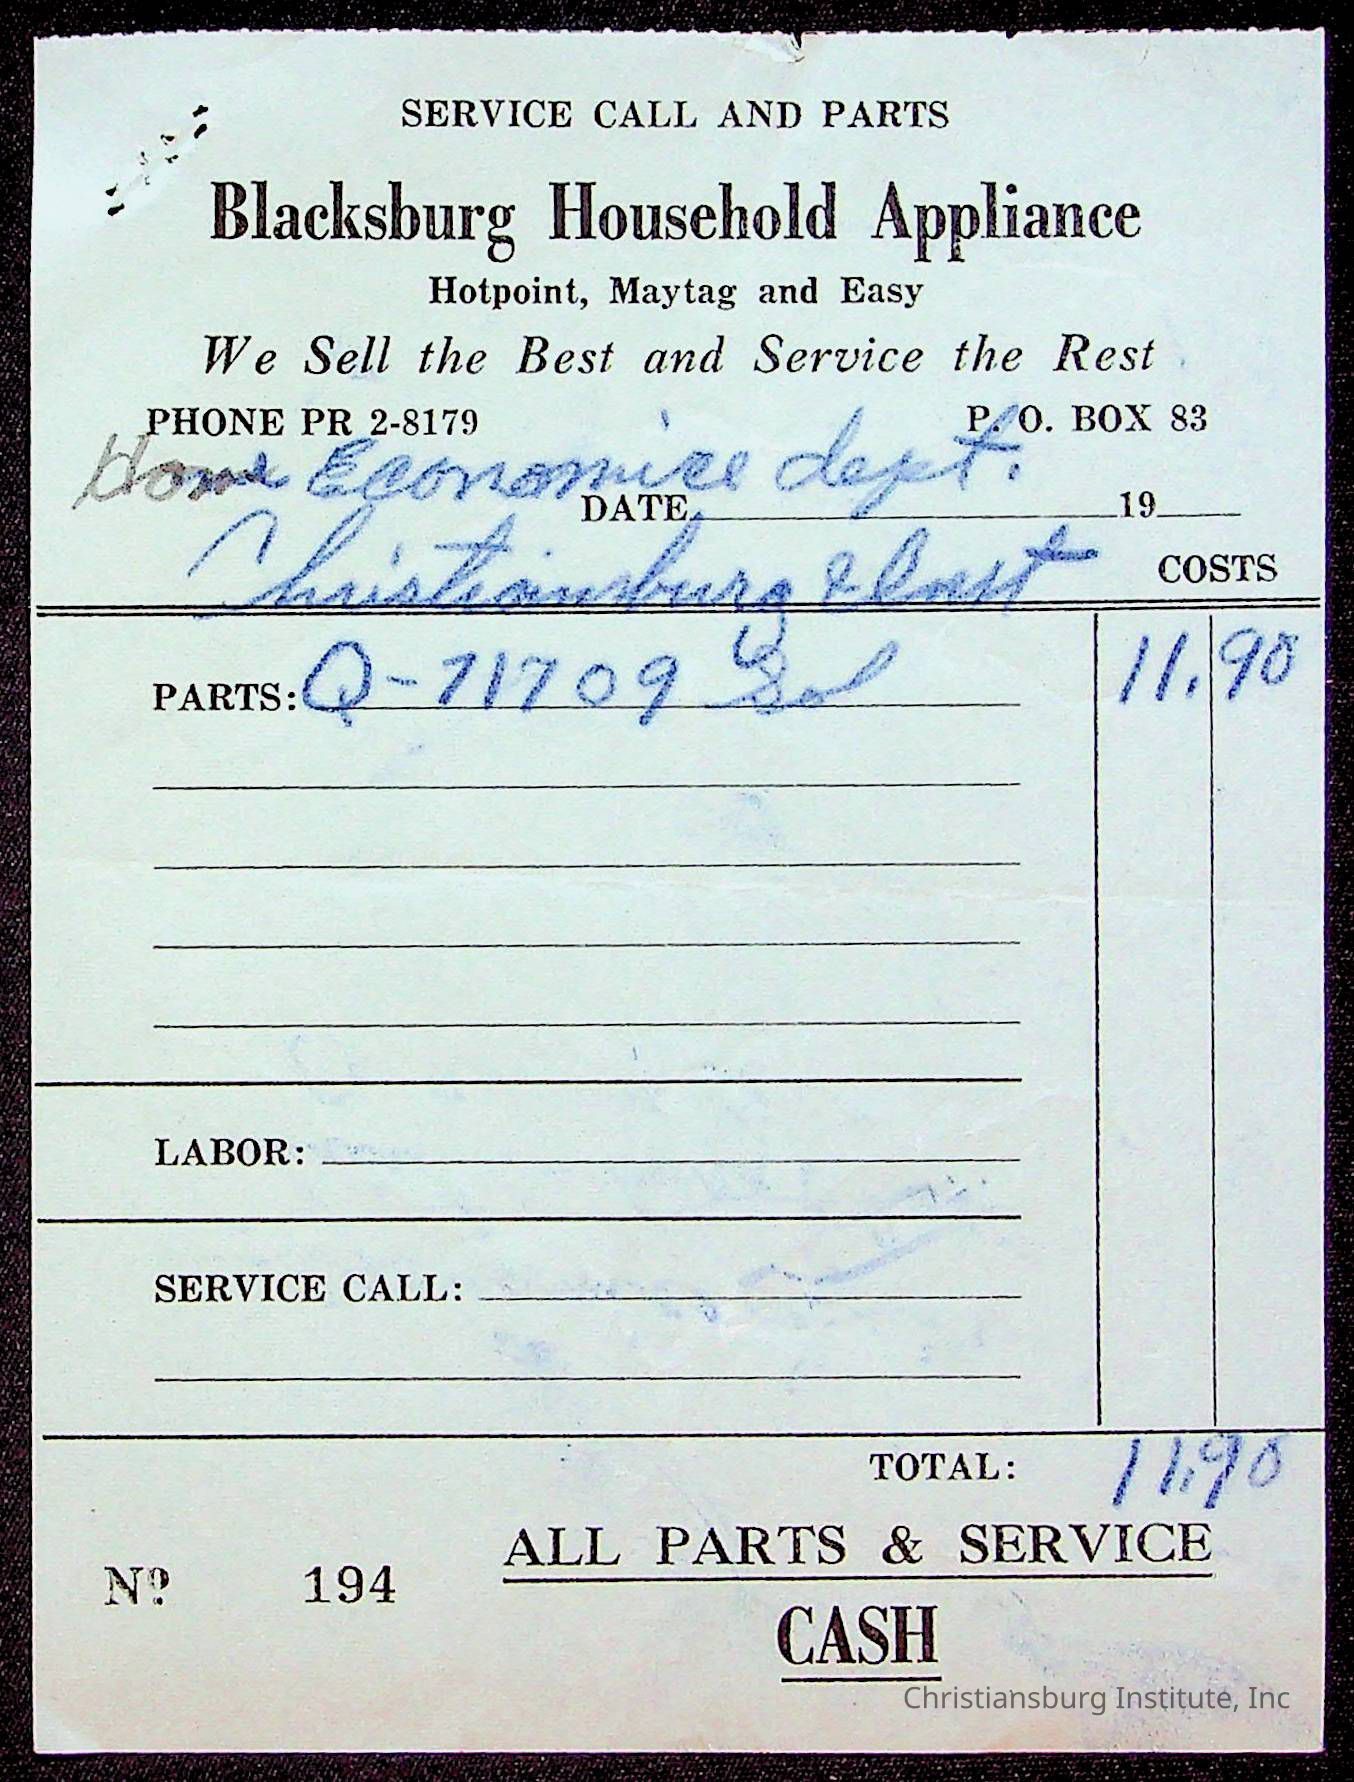 SERVICE CALL AND PARTS
Blacksburg Household Appliance
Hotpoint, Maytag and Easy
We Sell the Best and Service the Rest
PHONE PR 2-8179 P. O. BOX 83
Home Economics dept.
DATE 19
Christiansburg
COSTS
PARTS: Q-71709 11.90
LABOR:
SERVICE CALL:
TOTAL: 11.90
ALL PARTS & SERVICE
Nº 194
CASH
Christiansburg Institute, Inc